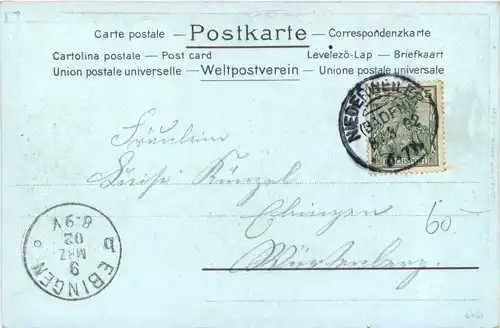 Carte postale — Postkarte — Correspondenzkarte
Cartolina postale — Post card Levelező-Lap — Briefkaart
Union postale universelle — Weltpostverein — Unione postale universale
(BADEN)
Fräulein
Luise Künzel
Ebingen
60.-
Württemberg.
EBINGEN
b
9
MRZ
02
8-9V